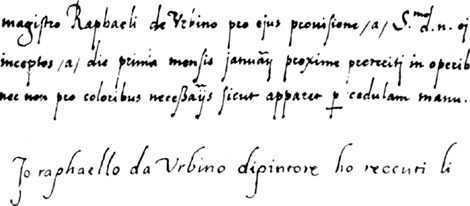 magistro Raphaeli de Vrbino pro ejus prouisione /a/ S.mo d.n. ej
inceptos /a/ die prima mensis januarij proxime preteritj in operib
nec non pro coloribus necessarijs sicut apparet p cedulam manu.
Jo raphaello da Vrbino dipintore ho receuti li